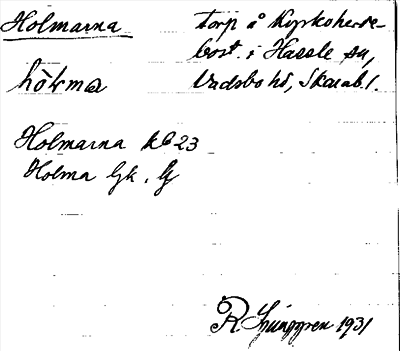 Holmarna
torp å Kyrkoherde-
bost. i Hassle sn,
Vadsbo hd, Skarab. l.
Holmarna kb 23
Holma Gk. G
R Ljunggren 1931